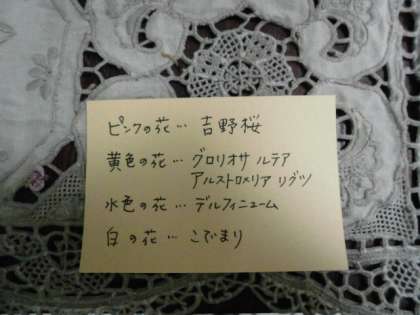 ピンクの花… 吉野桜
黄色の花… グロリオサ ルテア
アルストロメリア リグツ
水色の花… デルフィニューム
白の花… こでまり